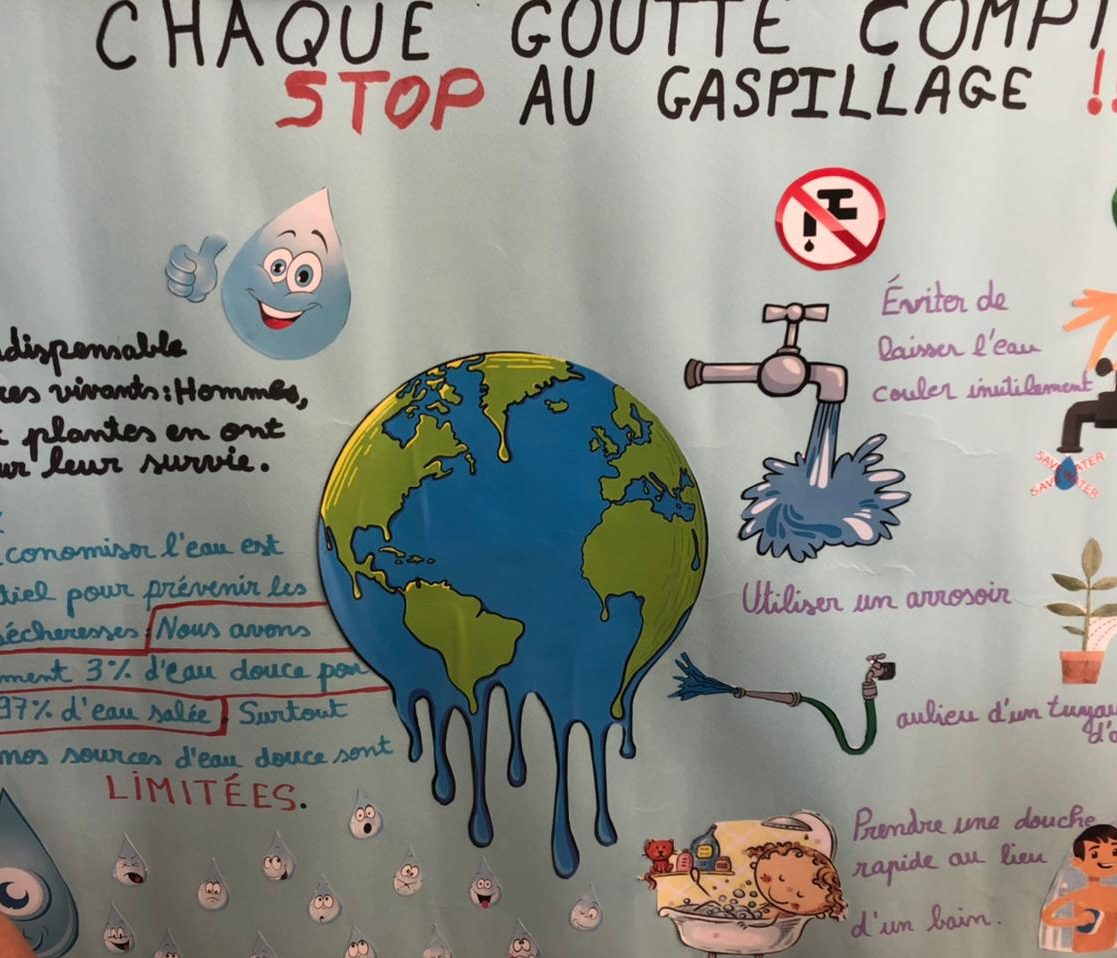 CHAQUE GOUTTE COMPT
STOP AU GASPILLAGE !!
dispensable
res vivants: Hommes,
plantes en ont
ur leur survie.
Économiser l'eau est
tiel pour prévenir les
sécheresses. Nous avons
ment 3% d'eau douce pour
97% d'eau salée. Surtout
nos sources d'eau douce sont
LIMITÉES.
Éviter de
laisser l'eau
couler inutilement
SAVE WATER
SAVE WATER
Utiliser un arrosoir
aulieu d'un tuyau
d'a
Prendre une douche
rapide au lieu
d'un bain.